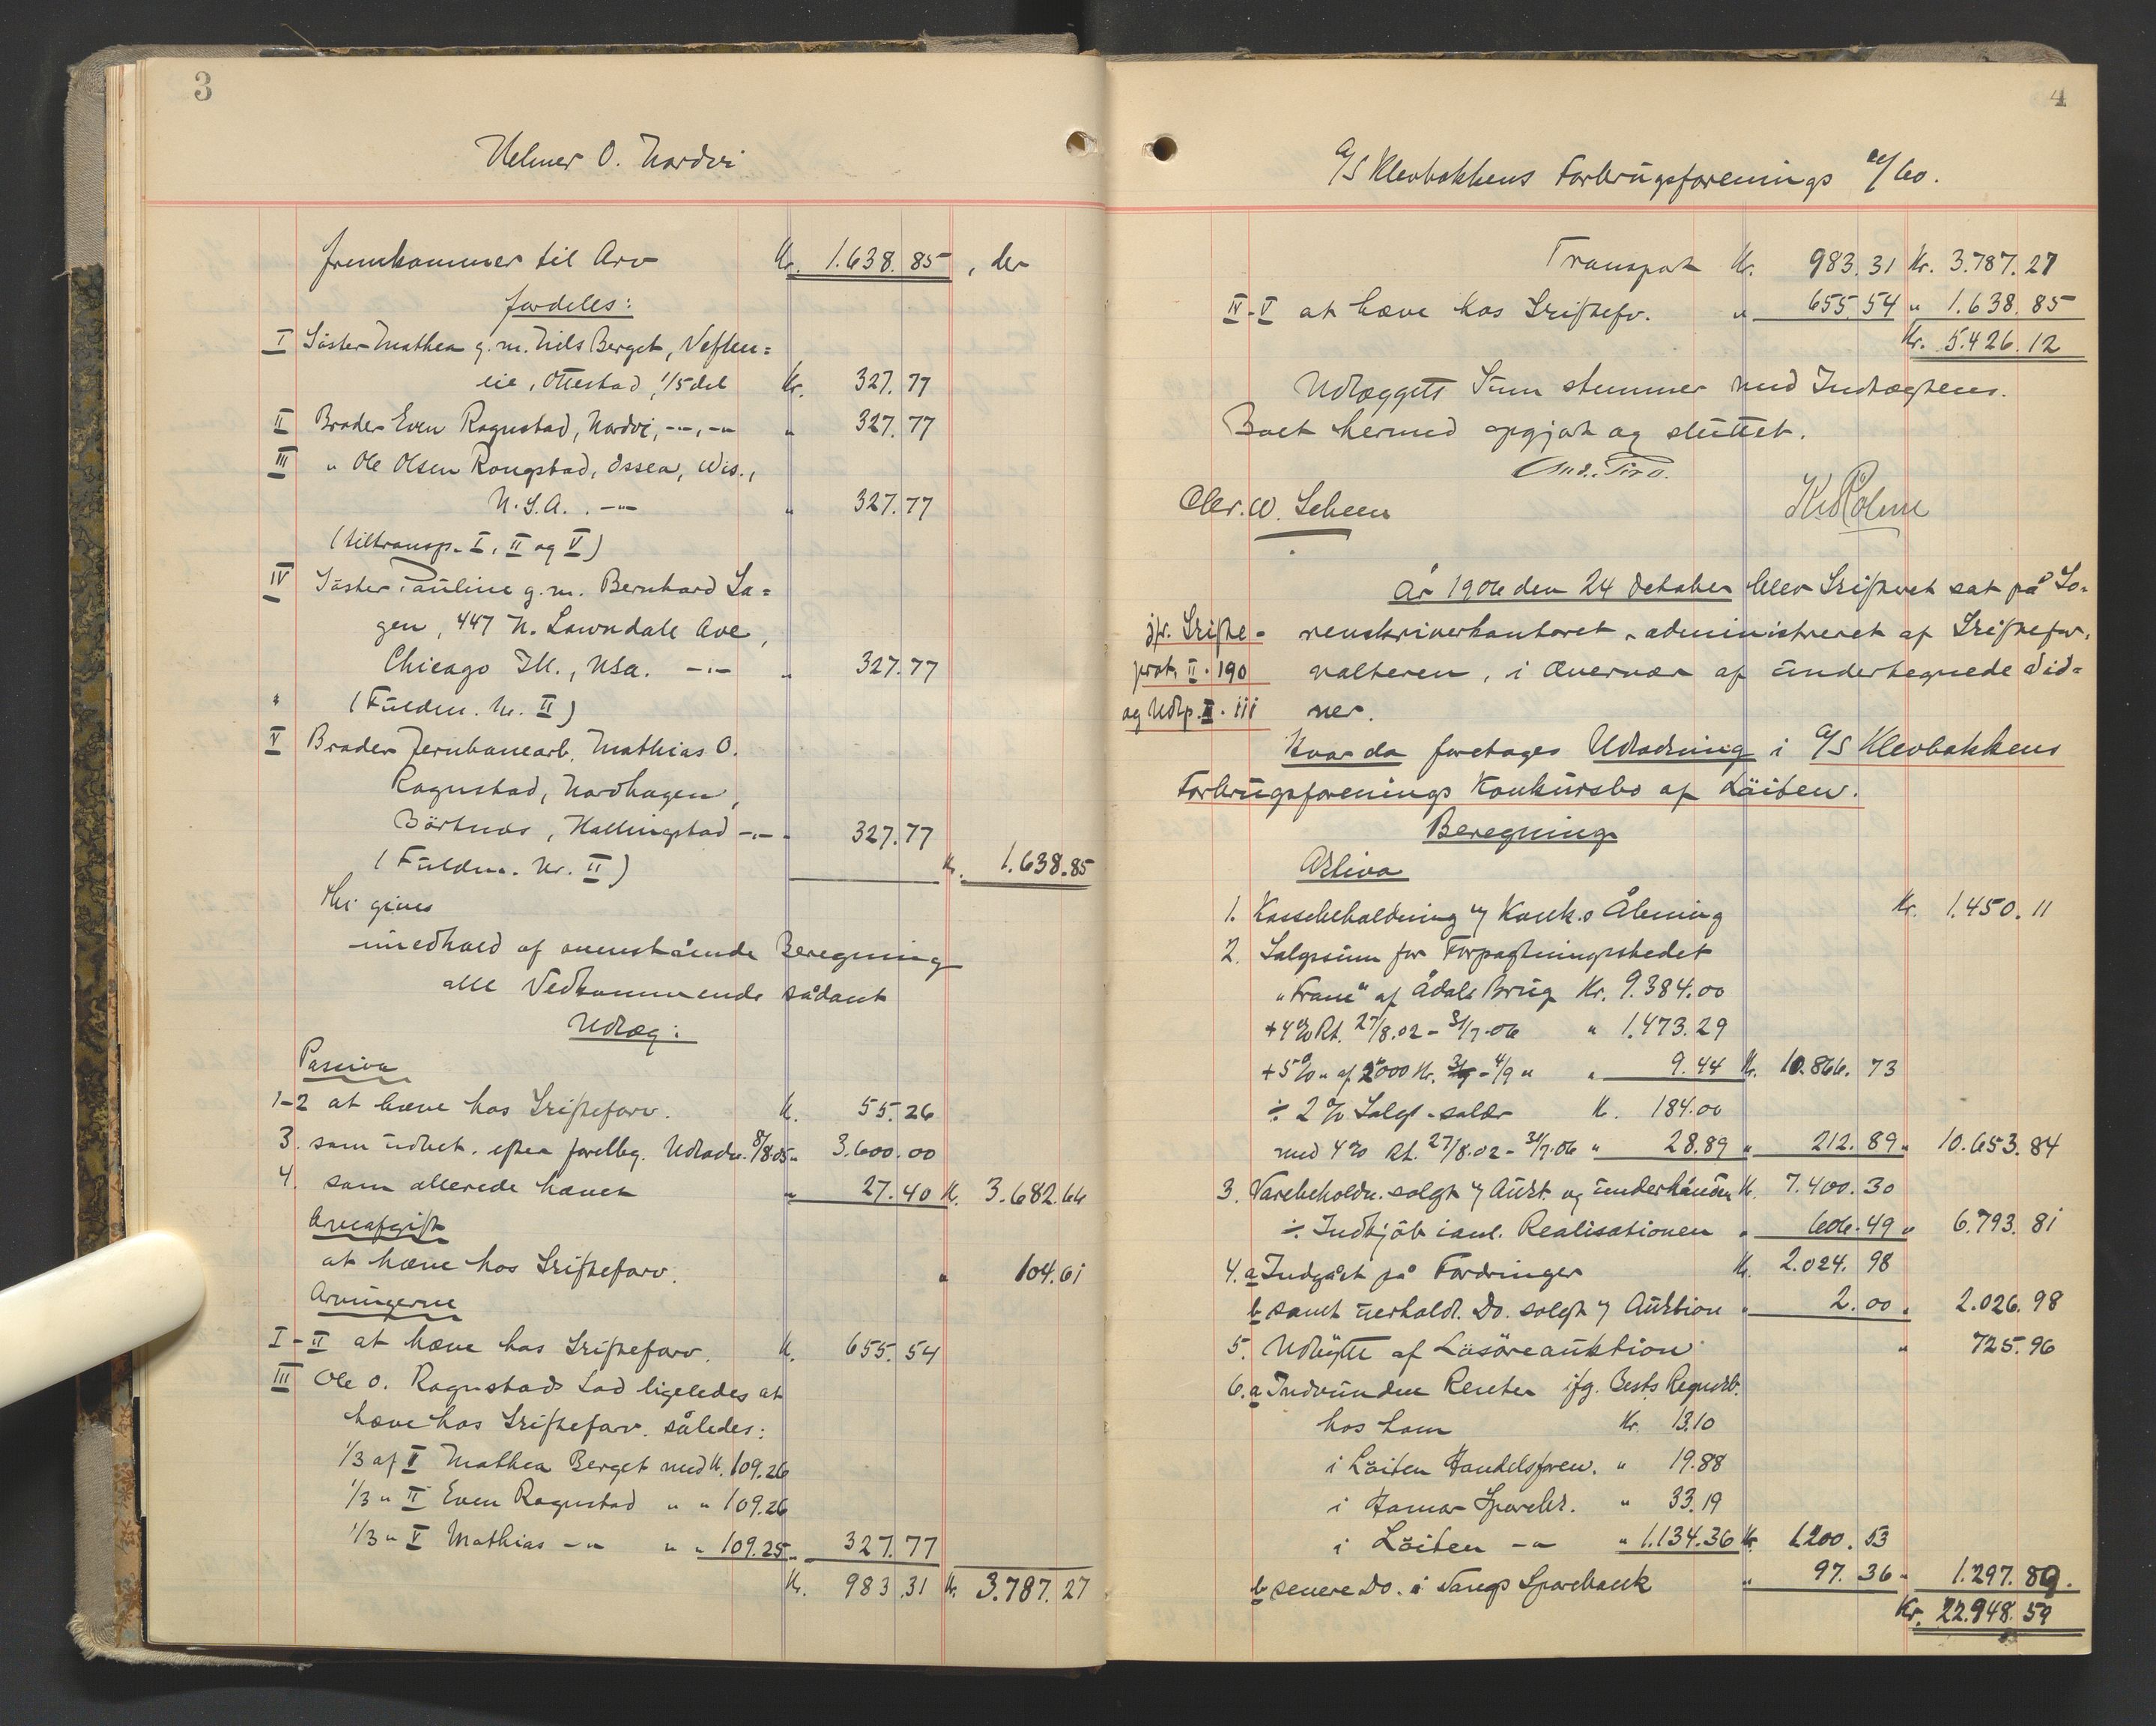 3
Helmer O. Nordvi
fremkommer til Arv Kr. 1.638.85, der
fordeles:
I Söster Mathea g.m. Nils Berget, Veflen=
eie, Ottestad, 1/5 del Kr. 327.77
II Broder Even Rognstad, Nordvi, -"-, -"- " 327.77
III " Ole Olsen Rongstad, Osseo, Wis.,
U.S.A. -"- " 327.77
(tiltransp. I, II og V)
IV Söster Pauline g.m. Bernhard La=
gen, 447 N. Lawndale Ave,
Chicago Ill., USA. -"- " 327.77
(Fuldm. Nr. II)
V Broder Jernbanearb. Mathias O.
Rognstad, Nordhagen,
Börtnes, Hallingstad -"- " 327.77
Kr. 1.638.85
(Fuldm. Nr. II)
Thi gives
imedhold af ovenstående Beregning
alle Vedkommende sådant
Udlæg:
Passiva
1-2 at hæve hos Skifteforv. K. 55.26
3. som udbet. efter foreløbig Udlodn. 8/8.05 " 3.600.00
4. som allerede hævet " 27.40 K. 3.682.66
Arveafgift
at hæve hos Skifteforv. " 104.61
Arvingerne
I-II at hæve hos Skifteforv. K. 655.54
III Ole O. Rognstads Lod ligeledes at
hæve hos Skifteforv. således:
1/3 af I Mathea Berget med K. 109.26
1/3 " II Even Rognstad " " 109.26
1/3 " V Mathias -"- " " 109.25 " 327.77
Kr. 983.31 K. 3.787.27
4
A/S Klevbakkens Forbrugsforenings
Transport K. 983.31 Kr. 3.787.27
IV-V at hæve hos Skiftefv. " 655.54 " 1.638.85
Kr. 5.426.12
Udlæggets Sum stemmer med Indtægtens.
Boet hermed opgjort og sluttet.
Chr. W. Scheen
År 1906 den 24 Oktober blev Skifteret sat på So=
jfr. Skifte-
prot. II. 190
og Udlp. II. 111
renskriverkontoret, administreret af Skiftefor=
valteren, i Overvær af undertegnede Vid=
ner.
Hvor da foretages Udlodning i A/S Klevbakkens
Forbrugsforenings Konkursbo af Löiten.
Beregning
Aktiva
1. Kassebeholdning v/ Konk.s Åbning Kr. 1.450.11
2. Salgssum for Forpagtningsstedet
"Fram" af Ådals Brug Kr. 9.384.00
+4% Rt. 27/8.02 - 31/7.06 " 1.473.29
+5% " af 2000 Kr. 31/7 - 4/9 " " 9.44 K. 10.866.73
÷ 2% Salgs-salær K. 184.00
med 4% Rt. 27/8.02 - 31/7.06 " 28.89 " 212.89 " 10.653.84
3. Varebeholdn. solgt v/ Aukt. og underhånden K. 7.400.30
÷ Indkjöb ianl. Realisationen " 606.49 " 6.793.81
4. a Indgået på Fordringer K. 2.024.98
b samt uerholdt. Do. solgt v/ Auktion " 2.00 " 2.026.98
5. Udbytte af Lösöreauktion " 725.96
6. a Indvundne Renter ifg. Bests Regnsk.
hos ham Kr. 13.10
i Löiten Handelsforen. " 19.88
i Hamar Sparebk. " 33.19
i Löiten -"- " 1.134.36 K. 1.200.53
b senere Do. i Vangs Sparebank " 97.36 " 1.297.89.
Kr. 22.948.59